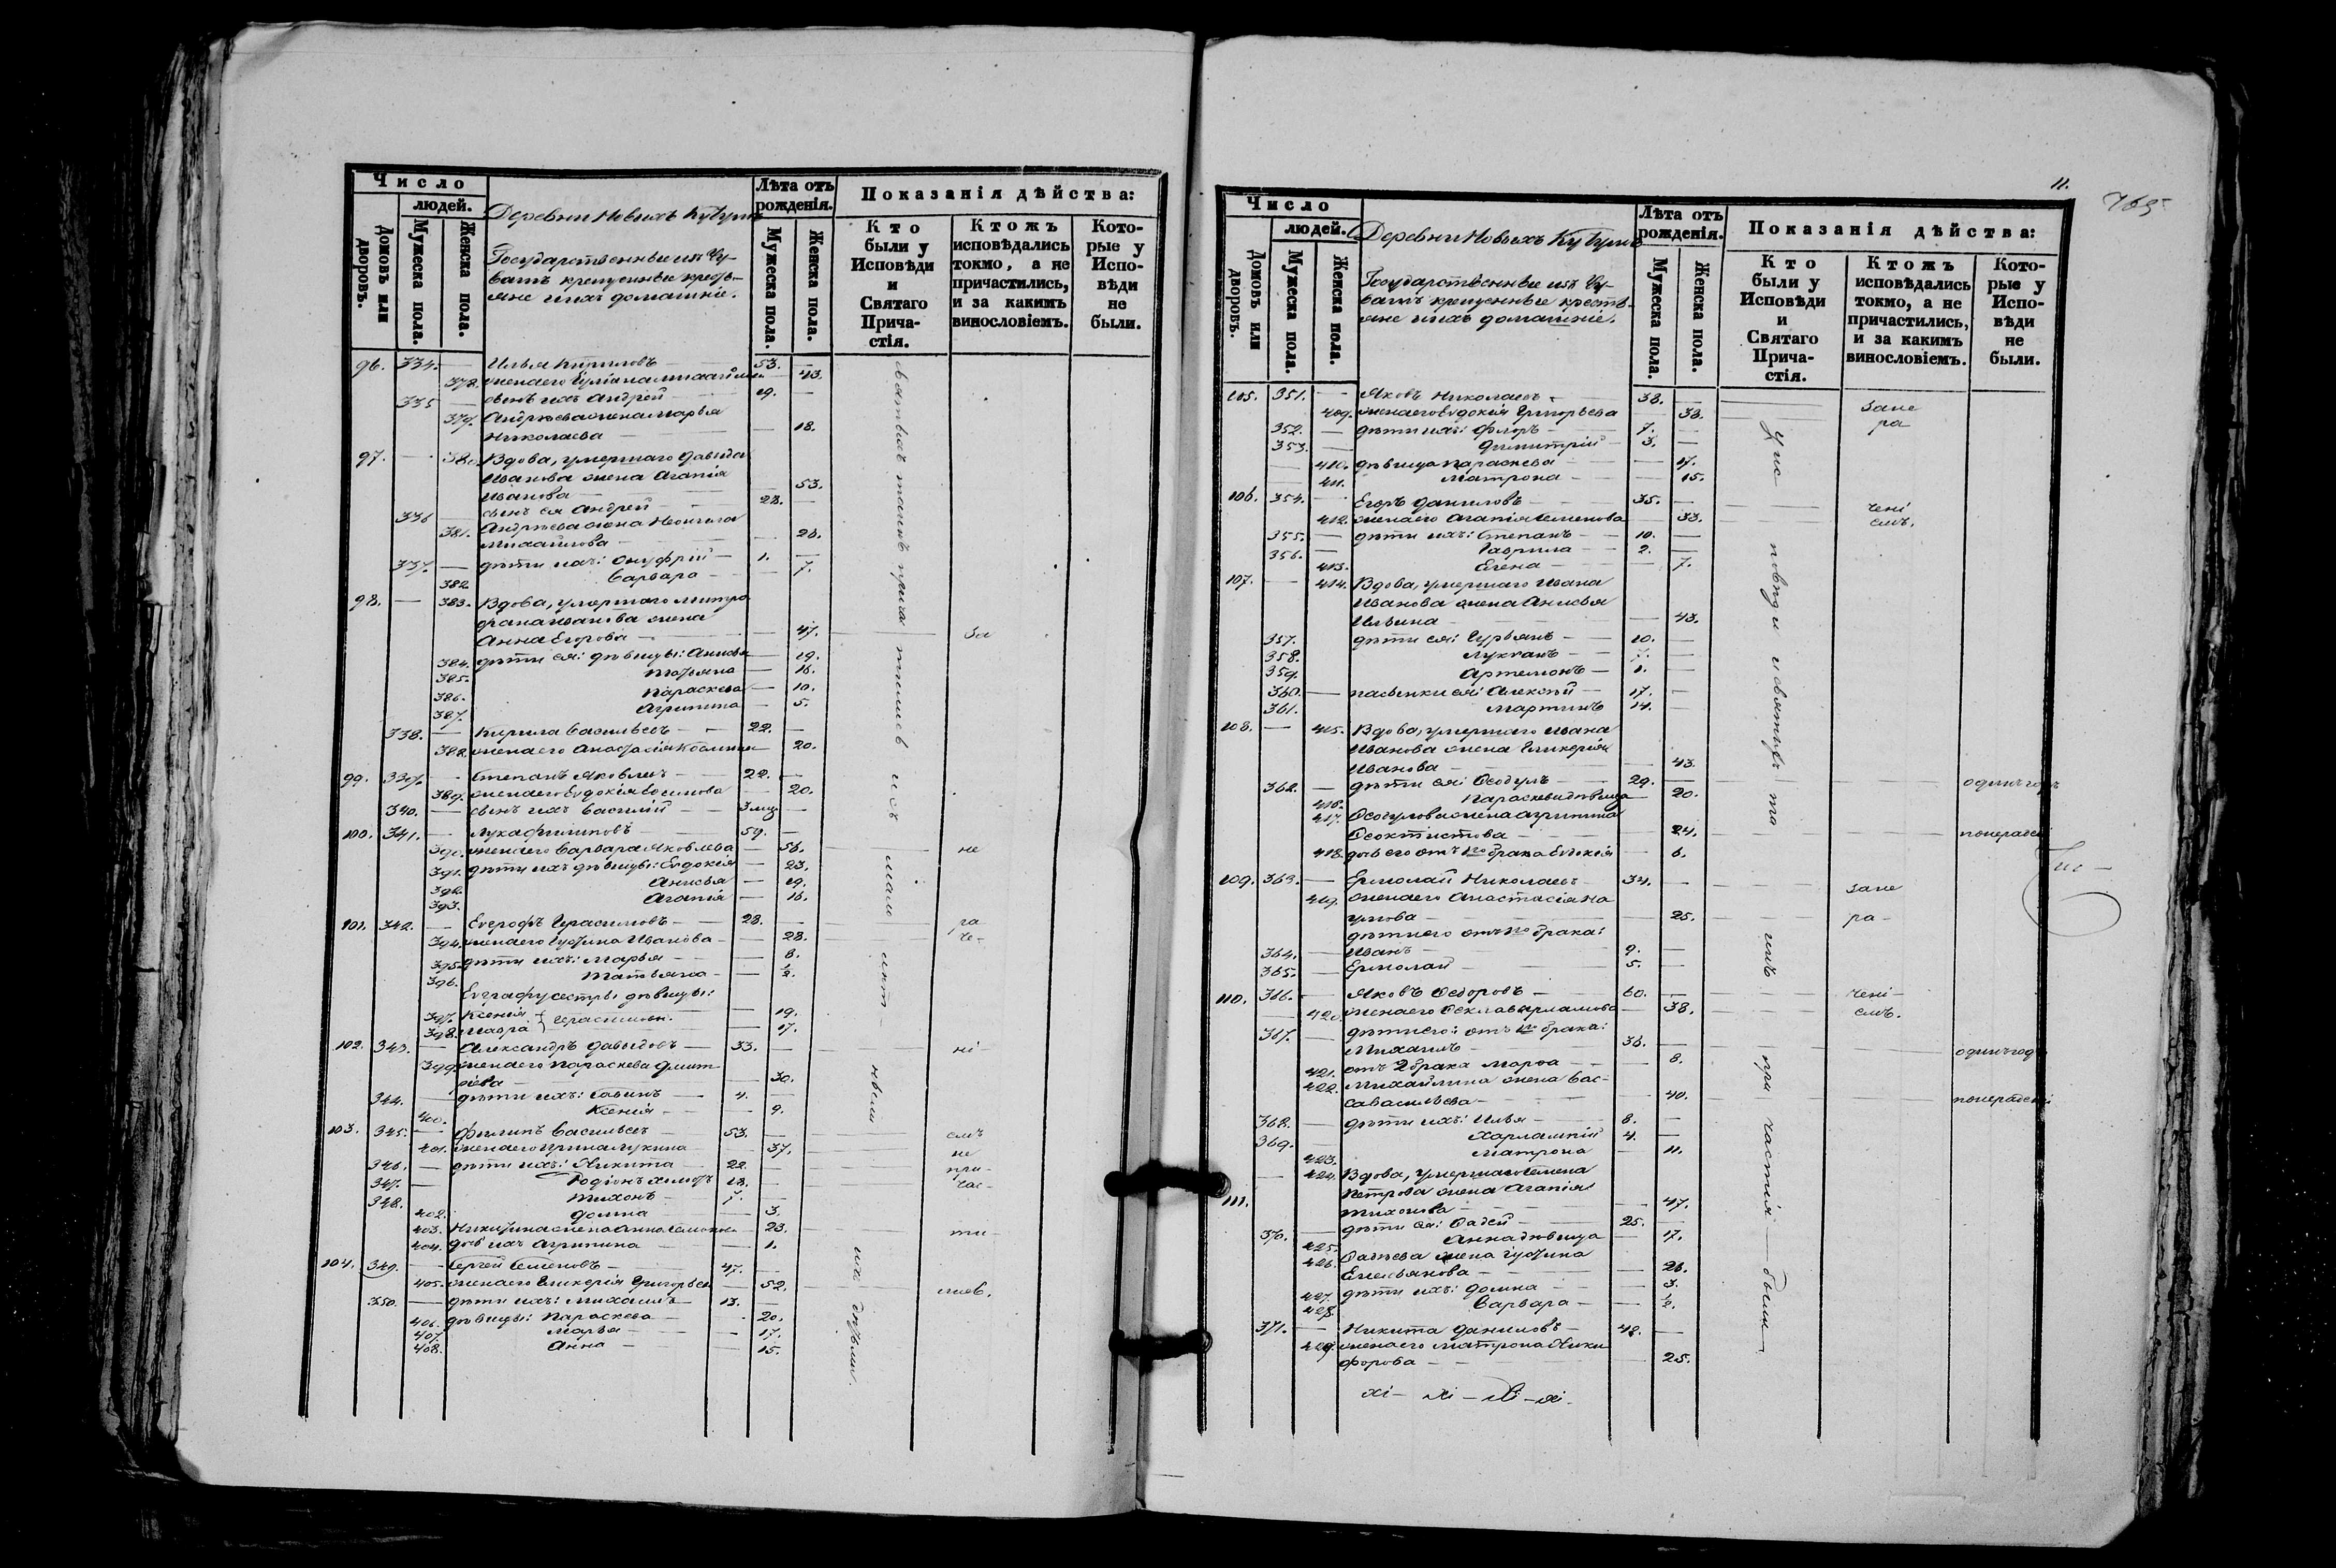 Число
людей.
Домовъ или дворовъ.
Мужеска пола.
Женска пола.
Деревни Новыхъ
Государственные изъ Чу-
вашъ крещенные кресть-
яне и ихъ домашніе.
Лѣта отъ рожденія.
Мужеска пола.
Женска пола.
Показанія дѣйства:
Кто были у Исповѣди и Святаго Прича-стія.
Ктожъ исповѣдались токмо, а не причастились, и за какимъ винословіемъ.
Кото-рые у Испо-вѣди не были.
96. 334. — Илья Кириловъ 53. —
378. жена его 43.
335 — сынъ ихъ Андрей — 19. —
379. Андреева жена Марья
Николаева — — 18.
97. — 380. Вдова, умершаго Давыда
Иванова жена Агапія
Иванова — 53.
336 сынъ ея Андрей — 28. —
381. Андреева жена
Михайлова — — 28.
337. — дѣти ихъ: Онуфрій — 1. —
382 Варвара — — 7.
98. — 383. Вдова, умершаго Митро
фана Иванова жена
Анна Егорова — — 47. за
384. дѣти ея: дѣвицы: Анисья — 19.
385. Татьяна — 16.
386. Параскева — 10.
387. Агрипина — 5.
338. — Кирила Васильевъ — 22. —
388. жена его Анастасія — 20.
99. 339. — Степанъ Яковлевъ — 22. —
389. жена его Евдокія — 20.
340. — сынъ ихъ Василій — 3 мц —
100. 341. — Лука Филиповъ — 59. —
390. жена его Варвара Яковлева — 56. не
391. дѣти ихъ дѣвицы: Евдокія — 23.
392. Анисья — 19.
393. Агапія — 16.
101. 342. — Герасимовъ — 28. — ра
394. жена его Устина Иванова — 28. че-
395. дѣти ихъ: Марья — 8.
396. Татьяна — — ½.
Евграфу сестры дѣвицы:
397. Ксенія — 19.
398. Мавра — 17.
102. 343. — Александръ Давыдовъ — 33. — ні-
399. жена его Параскева Дмит
ріева — — 30.
344. — дѣти ихъ: Савинъ — 4. —
400. Ксенія — — 9.
103. 345. — Филипъ Васильевъ — 53. — емъ
401. жена его Ирина Лукина — 37. не
346. — дѣти ихъ: Никита — 22. — при-
347. — Родіонъ 18. — час-
348. Тихонъ — 7. —
402. Домна — — 3.
403. Никитина жена Анна — 23. ти-
404. дочь ихъ Агрипина — 1.
104. 349. — Сергей Семеновъ — 47. —
405. жена его Гликерія Григорьева — 52. лись.
350. — дѣти ихъ: Михаилъ — 13. —
406. дѣвицы: Параскева — 20.
407. Марья — — 17.
408. Анна — — 15.
11.
765
Число
людей.
Домовъ или дворовъ.
Мужеска пола.
Женска пола.
Деревни Новыхъ
Государственные изъ Чу-
вашъ крещенные кресть-
яне и ихъ домашніе.
Лѣта отъ рожденія.
Мужеска пола.
Женска пола.
Показанія дѣйства:
Кто были у Исповѣди и Святаго Прича-стія.
Ктожъ исповѣдались токмо, а не причастились, и за какимъ винословіемъ.
Кото-рые у Испо-вѣди не были.
105. 351. — Яковъ Николаевъ — 38. — за не
409. жена его Евдокія Григорьева — 38. ра
352. — дѣти ихъ: Флоръ — 7. —
353. — Димитрій — 3. —
— 410. дѣвица Параскева — — 17.
411. Матрона — — 15.
106. 354. — Егоръ Даниловъ — 35. — чені
412. жена его Агапія Семенова — 33. емъ.
355. — дѣти ихъ: Степанъ — 10. —
356. — Гаврила — 2. —
413. Елена — — 7.
107. — 414. Вдова, умершаго Ивана
Иванова жена Анисья
Ильина — — 43.
357. дѣти ея: Гурьянъ — 10. —
358. Лукіанъ — 7. —
359. Артемонъ — 1. —
360. — пасынки ея: Алексѣй — 17. —
361. Мартинъ 14. —
108. — 415. Вдова, умершаго Ивана
Иванова жена Гликерія
Иванова — — 43.
362. — дѣти ея: Ѳеодулъ — 29. — одинъ годъ
416. Параскева дѣвица — 20.
417. Ѳеодулова жена Агрипина
Ѳеоктистова — — 24. по нераденi
418. дочь его отъ 1го брака Евдокія — 6.
109. 363. — Ермолай Николаевъ — 34. — за не
419. жена его Анастасія На
умова — — 25. ра-
дѣти его отъ 1го брака:
364. — Иванъ — 9. —
365. — Ермолай — 5. —
110. 366. — Яковъ Ѳедоровъ — 60. — чені-
420. жена его Ѳекла Варламова — 38. емъ.
367. — дѣти его: отъ 1го брака:
Михаилъ — 36. — одинъ годъ
421. отъ 2 брака Марѳа — — 8.
422. Михайлина жена Вас-
са Васильева — — 40. по нераденi
368. — дѣти ихъ: Илья — 8. —
369. — Харлампій 4. —
423. Матрона — 11.
111. — 424. Вдова, умершаго Семена
Петрова жена Агапія
Тихонова — — 47.
370. — дѣти ея: Фадей — 25. —
425. Анна дѣвица — 17.
426. Фадѣева жена Устина
Емельянова — — 26.
427. дѣти ихъ: Домна — — 3.
428. Варвара — — ½.
371. — Никита Даниловъ — 48. —
429. жена его Матрона Ники
форова — — 25.
у ис повѣди и святыхъ та инъ при частія были